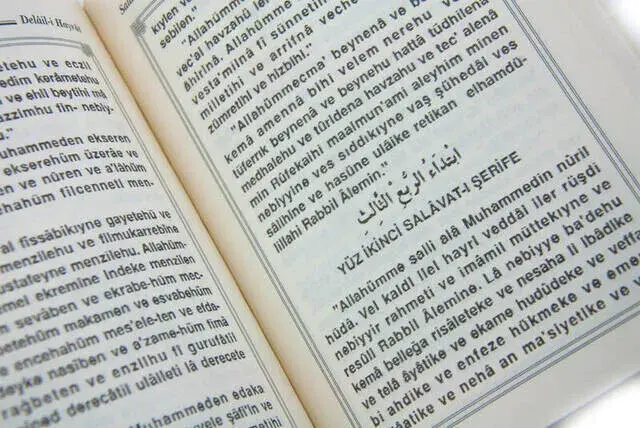 Delâil-i Hayrât
ümmeden ekseren
ekserehüm üzerâe ve
en ve nûren ve a'lâhüm
ehahüm filcenneti men-
al fissâbikıyne gayetehû ve
menzilehu ve filmukarrebine
ustafeyne menzilehu. Allahüm-
mel ekremine indeke menzilen
sevâben ve ekrabe-hüm mec-
etehüm makamen ve esvabehüm
ve encehahüm mes'ele-ten ve efda-
eyke nasîben ve a'zame-hüm fimâ
rağbeten ve enzilhu fi gurufatil
ined derecâtil ulâlleti lâ derecete
Muhammeden edaka
kıylen ve
sebilen.
"Allahümme
vec'al havzahu
âhirinâ. Allahümme
vesta'milnâ fi sünnetihi
milletihi ve arrifnâ vechehu
zümretihi ve hizbihi."
"Allahümmecma' beynenâ ve beynehu
kemâ amennâ bihi velem nerehu ve
tüferrik beynenâ ve beynehu hattâ tüdhilenâ
medhalehu ve tûridena havzahu ve tec' alenâ
min Rüfekaihi maalmun'ami aleyhim minen
nebiyyine ves sıddıkıyne vaş şühedâi ves
sâlihine ve hasüne ulâike retikan elhamdü-
lillahi Rabbil Âlemin."
اِبْتِدَاءُ الرُّبْعِ الثَّالِثِ
YÜZ İKİNCİ SALÂVAT-I ŞERİFE
"Allahümme salli alâ Muhammedin nûril
hüdâ. Vel kaidi ilel hayri veddâi iler rüşdi
nebiyyir rahmeti ve imâmil müttekıyne ve
resûli Rabbil Âlemine. Lâ nebiyye ba'dehu
kemâ belleğa risâleteke ve nesaha li ibâdike
ve telâ âyâtike ve ekame hudûdeke ve vefa
bi ahdike ve enfeze hükmeke ve emer
ve nehâ an ma'siyetike ve